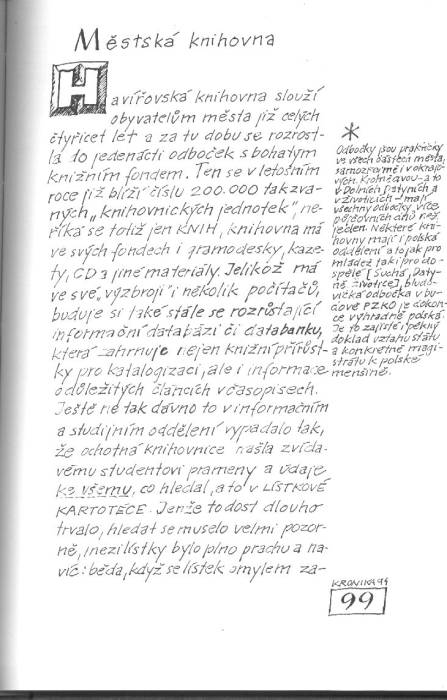 Městská knihovna
Havířovská knihovna slouží
obyvatelům města již celých
čtyřicet let a za tu dobu se rozrost-
la do jedenácti odboček s bohatým
knižním fondem. Ten se v letošním
roce již blíží číslu 200.000 takzva-
ných „knihovnických jednotek", ne-
říká se totiž jen KNIH, knihovna má
ve svých fondech i gramodesky, kaze-
ty, CD a jiné materiály. Jelikož má
ve své „výzbroji" i několik počítačů,
buduje si také stále se rozrůstající
informační databázi či databanku,
která zahrnuje nejen knižní přírůst-
ky pro katalogizaci, ale i informace
o důležitých článcích v časopisech.
Ještě ne tak dávno to v informačním
a studijním oddělení vypadalo tak,
že ochotná knihovnice našla zvída-
vému studentovi prameny a údaje
ke všemu, co hledal, a to v LÍSTKOVÉ
KARTOTÉCE. Jenže to dost dlouho
trvalo, hledat se muselo velmi pozor-
ně, mezi lístky bylo plno prachu a na-
víc: běda, když se lístek omylem za-
*
Odbočky jsou prakticky
ve všech částech města,
samozřejmě i v okrajo-
vých. Krom a to
v Dolních Datyních a
v Životicích – mají
všechny odbočky více
půjčovních dnů než
jeden. Některé kni-
hovny mají i polská
oddělení a to jak pro
mládež tak i pro do-
spělé [Suchá, Daty-
ně, Životice], bludo-
vická odbočka v bu-
dově PZKO je dokon-
ce výhradně polská.
Je to zajisté i pěkný
doklad vztahu státu
a konkrétně magi-
strátu k polské
menšině.
KRONIKA 99
99